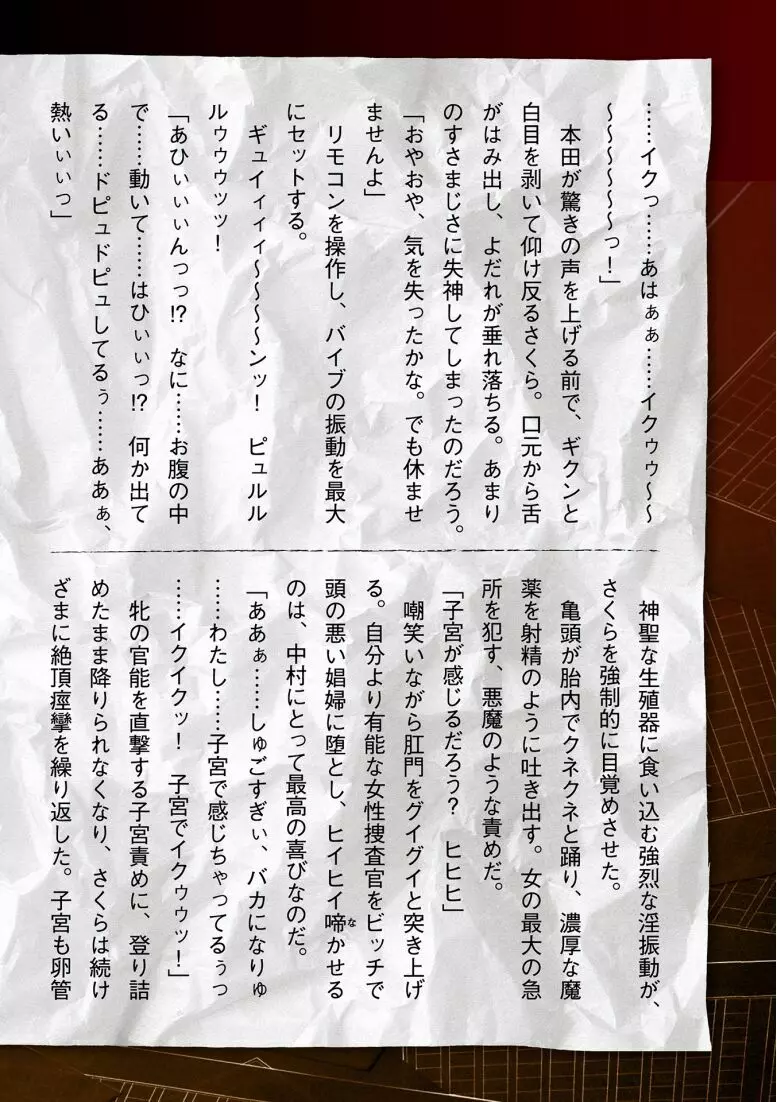 ……イクっ……あはぁぁ……イクゥゥ～～
～～～～～～っ！」
本田が驚きの声を上げる前で、ギクンと
白目を剥いて仰け反るさくら。口元から舌
がはみ出し、よだれが垂れ落ちる。あまり
のすさまじさに失神してしまったのだろう。
「おやおや、気を失ったかな。でも休ませ
ませんよ」
リモコンを操作し、バイブの振動を最大
にセットする。
ギュイィィィ～～～～ンッ！　ピュルル
ルゥゥゥッッ！
「あひぃぃぃんっっ!?　なに……お腹の中
で……動いて……はひぃぃっ!?　何か出て
る……ドピュドピュしてるぅ……ああぁ、
熱いぃぃっ」
神聖な生殖器に食い込む強烈な淫振動が、
さくらを強制的に目覚めさせた。
亀頭が胎内でクネクネと踊り、濃厚な魔
薬を射精のように吐き出す。女の最大の急
所を犯す、悪魔のような責めだ。
「子宮が感じるだろう？　ヒヒヒ」
嘲笑いながら肛門をグイグイと突き上げ
る。自分より有能な女性捜査官をビッチで
頭の悪い娼婦に堕とし、ヒイヒイ啼かせる
のは、中村にとって最高の喜びなのだ。
「ああぁ……しゅごすぎぃ、バカになりゅ
……わたし……子宮で感じちゃってるぅっ
……イクイクッ！　子宮でイクゥゥッ！」
牝の官能を直撃する子宮責めに、登り詰
めたまま降りられなくなり、さくらは続け
ざまに絶頂痙攣を繰り返した。子宮も卵管